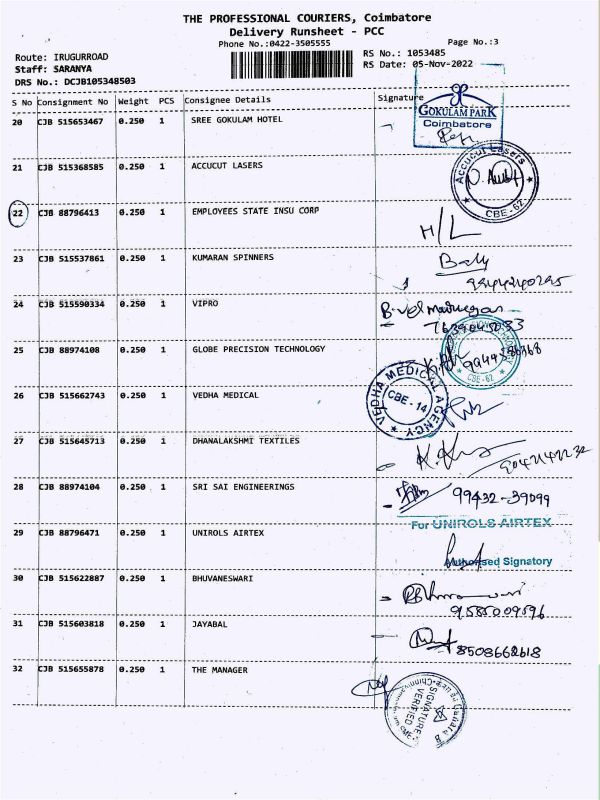 THE PROFESSIONAL COURIERS, Coimbatore
Delivery Runsheet - PCC
Phone No.:0422-3505555
Page No.:3
Route: IRUGURROAD
RS No.: 1053485
Staff: SARANYA
RS Date: 05-Nov-2022
DRS No.: DCJB105348503
S No Consignment No Weight PCS Consignee Details Signature
GOKULAM PARK
Coimbatore
20 CJB 515653467 0.250 1 SREE GOKULAM HOTEL
21 CJB 515368585 0.250 1 ACCUCUT LASERS
Accucut Lasers
CBE-62
22 CJB 88796413 0.250 1 EMPLOYEES STATE INSU CORP
H/L
23 CJB 515537861 0.250 1 KUMARAN SPINNERS
24 CJB 515590334 0.250 1 VIPRO
25 CJB 88974108 0.250 1 GLOBE PRECISION TECHNOLOGY
CBE-62
26 CJB 515662743 0.250 1 VEDHA MEDICAL
VEDHA MEDICAL AGENCY
CBE - 14
27 CJB 515645713 0.250 1 DHANALAKSHMI TEXTILES
28 CJB 88974104 0.250 1 SRI SAI ENGINEERINGS
99432-39099
For UNIROLS AIRTEX
29 CJB 88796471 0.250 1 UNIROLS AIRTEX
Authorised Signatory
30 CJB 515622887 0.250 1 BHUVANESWARI
9585009596
31 CJB 515603818 0.250 1 JAYABAL
8508662618
32 CJB 515655878 0.250 1 THE MANAGER
SIGNATURE
VERIFIED